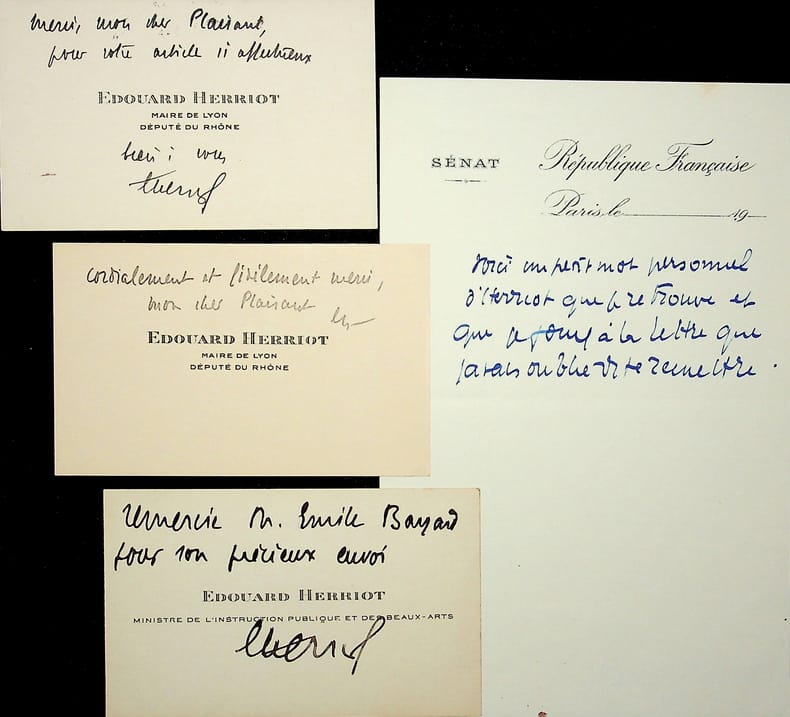 merci, mon cher Plaisant,
pour votre article si affectueux
EDOUARD HERRIOT
MAIRE DE LYON
DÉPUTÉ DU RHÔNE
bien à vous
Herriot
cordialement et fidèlement merci,
mon cher Plaisant
EDOUARD HERRIOT
MAIRE DE LYON
DÉPUTÉ DU RHÔNE
remercie M. Emile Bayard
pour son précieux envoi
EDOUARD HERRIOT
MINISTRE DE L'INSTRUCTION PUBLIQUE ET DES BEAUX-ARTS
Herriot
SÉNAT
République Française
Paris, le 19
Voici un petit mot personnel
d'Herriot que je retrouve et
que je joins à la lettre que
j'avais oublié de te remettre.